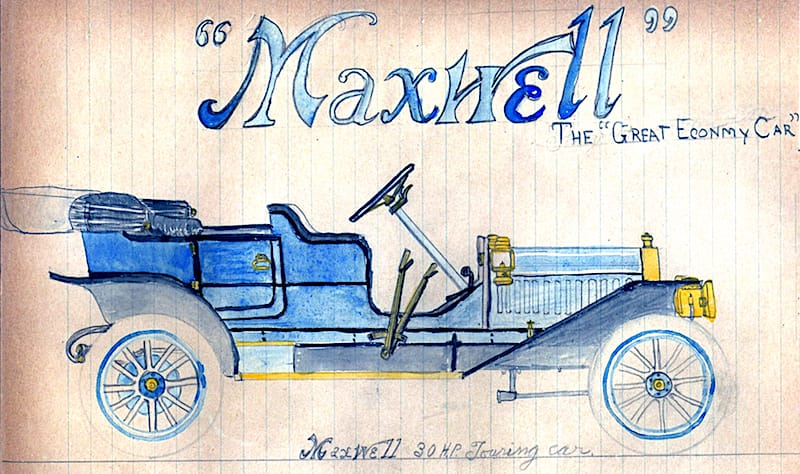 “Maxwell”
The "Great Econmy Car"
Maxwell 30 H.P. Touring car.